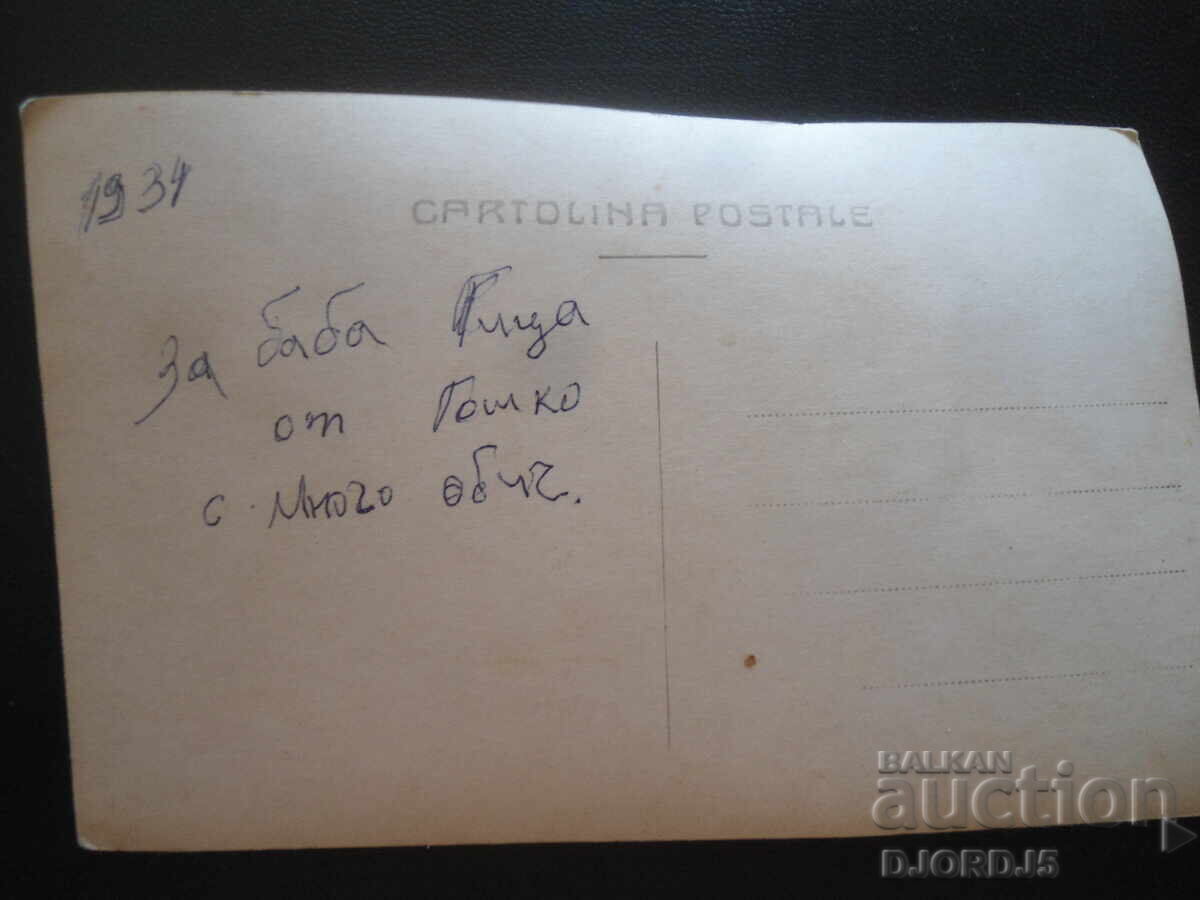 1934
CARTOLINA POSTALE
За баба Гица
от Гошко
с много обич.
BALKAN
auction
DJORDJ5